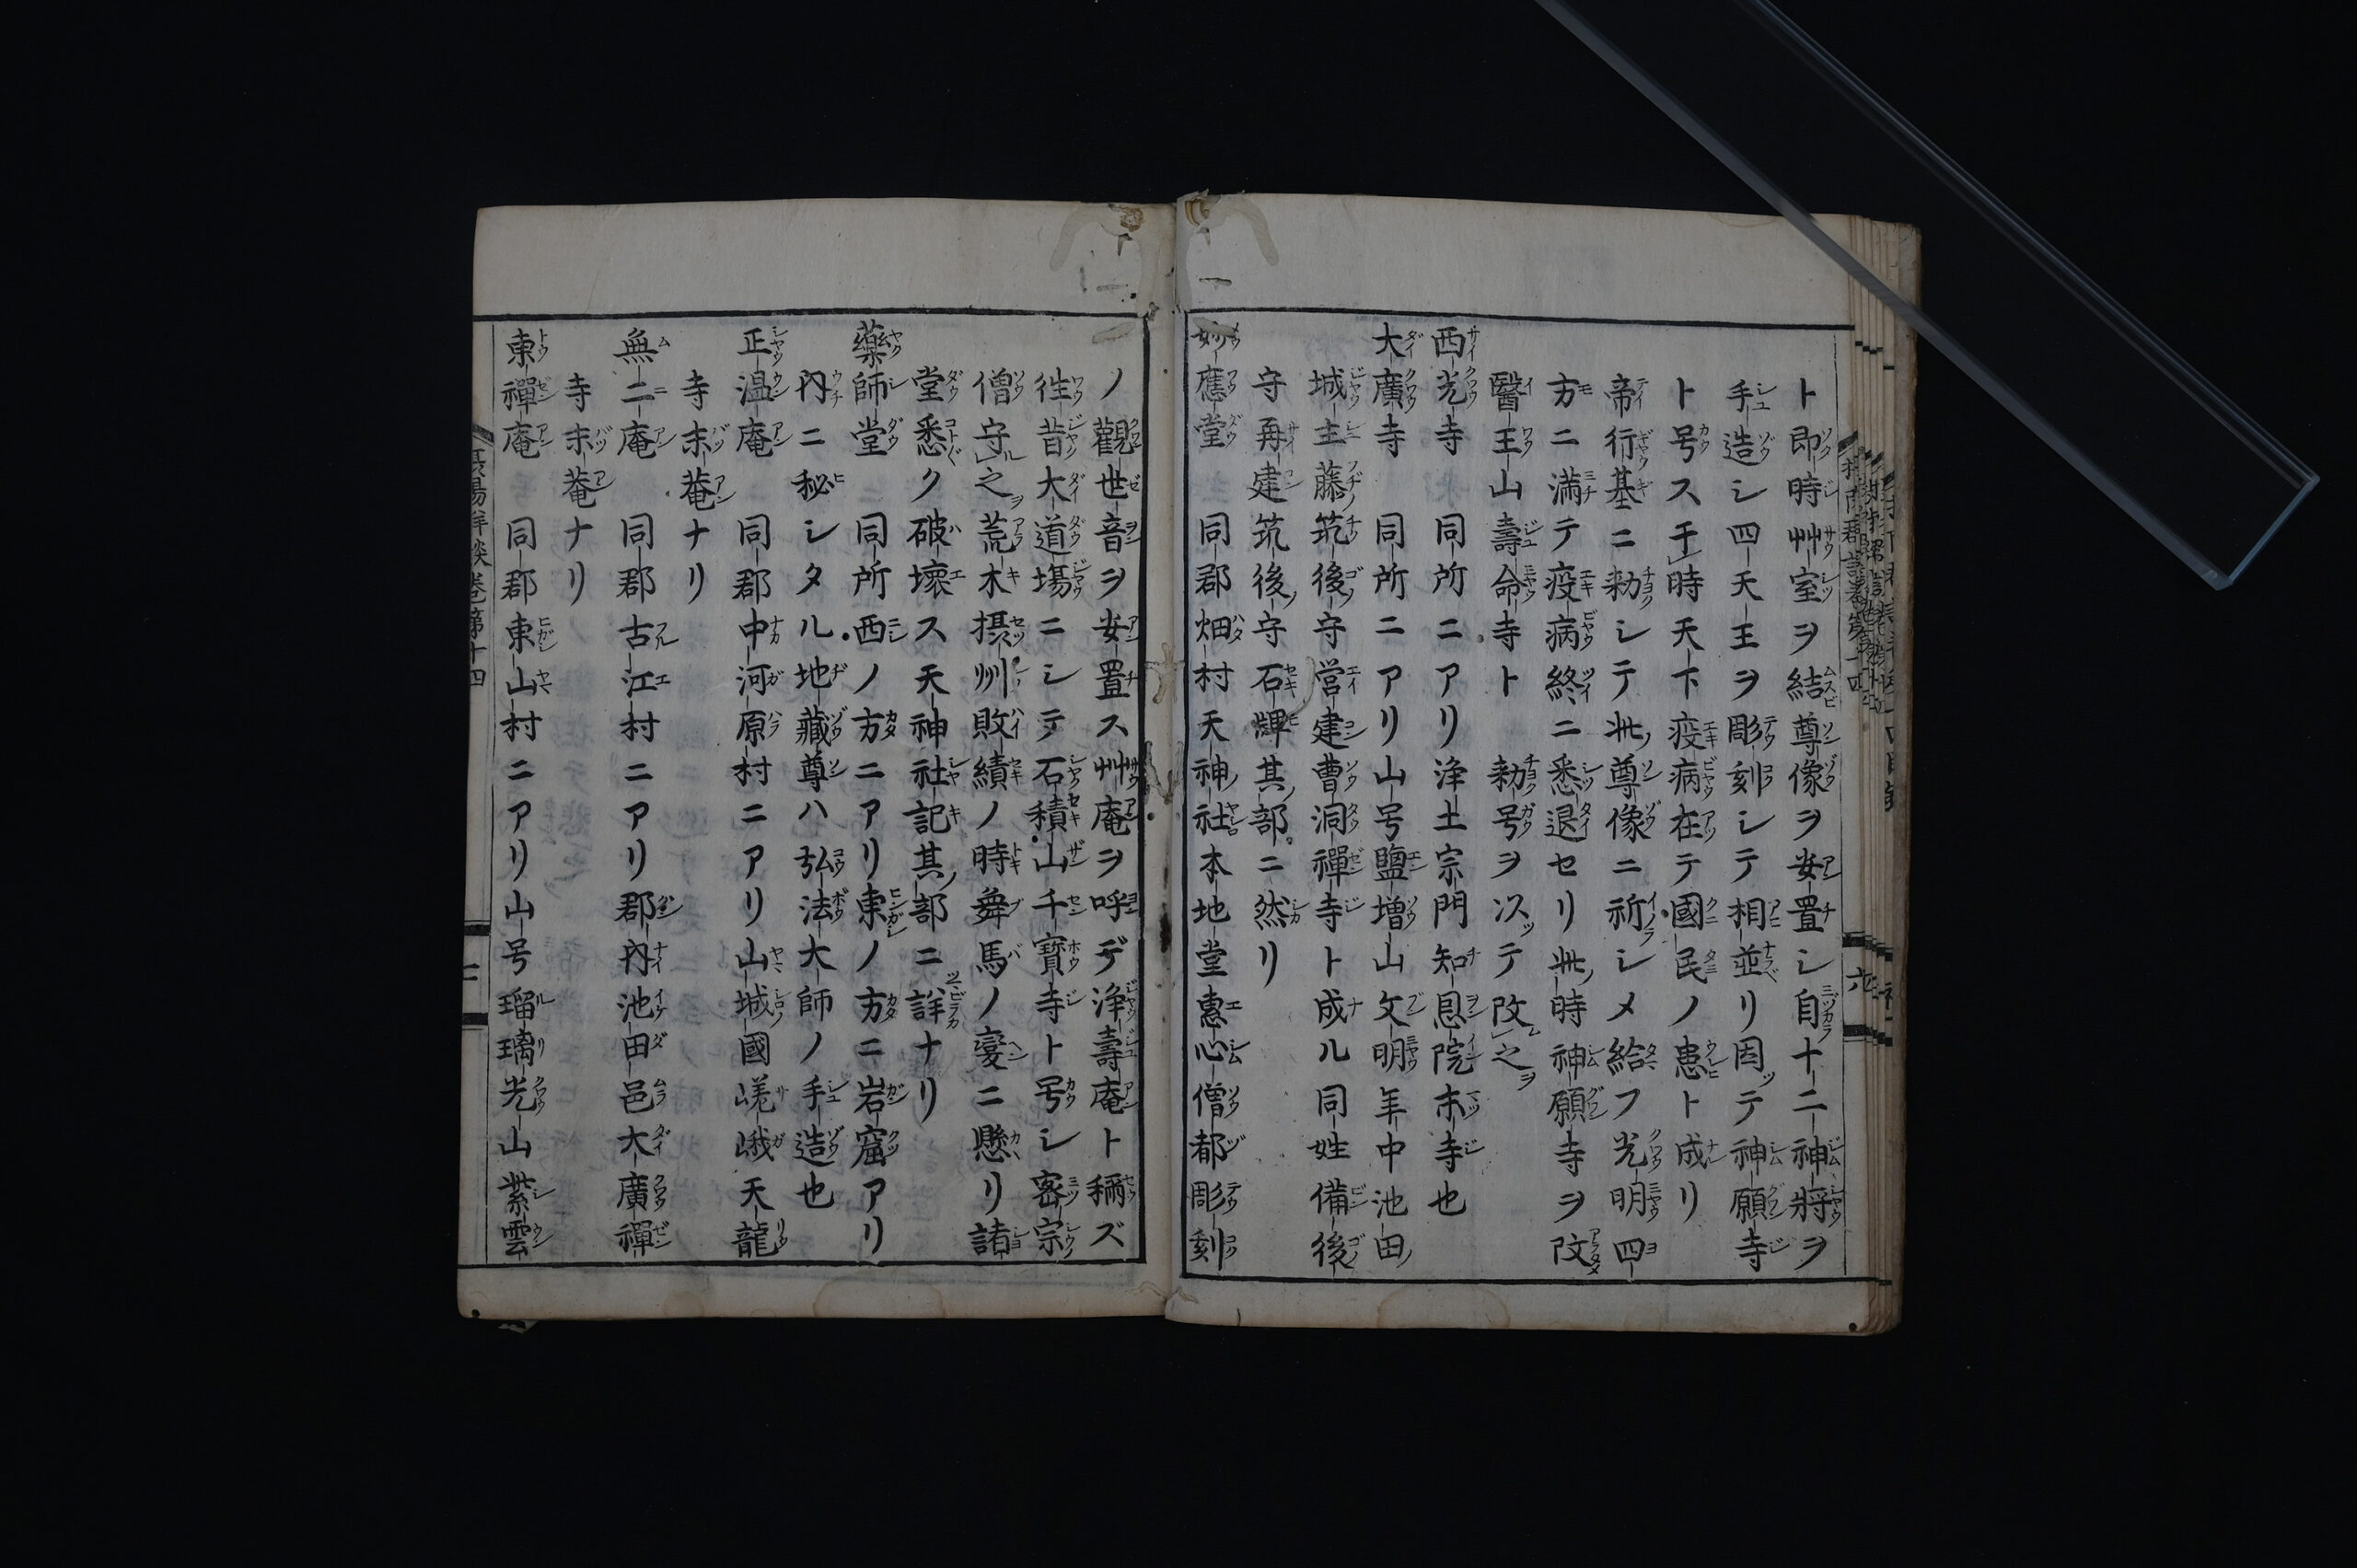 ト即時艸室ヲ結尊像ヲ安置シ自十二神將ヲ
手造シ四天王ヲ彫刻シテ相並リ因ッテ神願寺
ト号ス干時天下疫病在テ國民ノ患ト成リ
帝行基ニ勅シテ此ノ尊像ニ祈シメ給フ光明四
方ニ満テ疫病終ニ悉退セリ此ノ時神願寺ヲ改
醫王山壽命寺ト　勅号ヲ次ッテ改之ヲ
西光寺　同所ニアリ浄土宗門知恩院末寺也
大廣寺　同所ニアリ山号鹽増山文明年中池田ノ
城主藤ノ筑後ノ守営建曹洞禪寺ト成ル同姓備後ノ
守再建筑後ノ守石輝其ノ部ニ然リ
妙應堂　同郡畑村天神ノ社本地堂惠心僧都彫刻
ノ觀世音ヲ安置ス艸庵ヲ呼デ浄壽庵ト稱ズ
徃昔大道塲ニシテ石積山千寳寺ト号シ密宗ノ
僧守ル之ヲ荒木摂州敗績ノ時舞馬ノ變ニ懸リ諸
堂悉ク破壊ス天神社記其ノ部ニ詳ナリ
藥師堂　同所西ノ方ニアリ東ノ方ニ岩窟アリ
内ニ秘シタル地藏尊ハ弘法大師ノ手造也
正温庵　同郡中河原村ニアリ山城ノ國嵯峨天龍
寺末菴ナリ
無二庵　同郡古江村ニアリ郡内池田邑大廣禪
寺末菴ナリ
東禪庵　同郡東山村ニアリ山号瑠璃光山紫雲